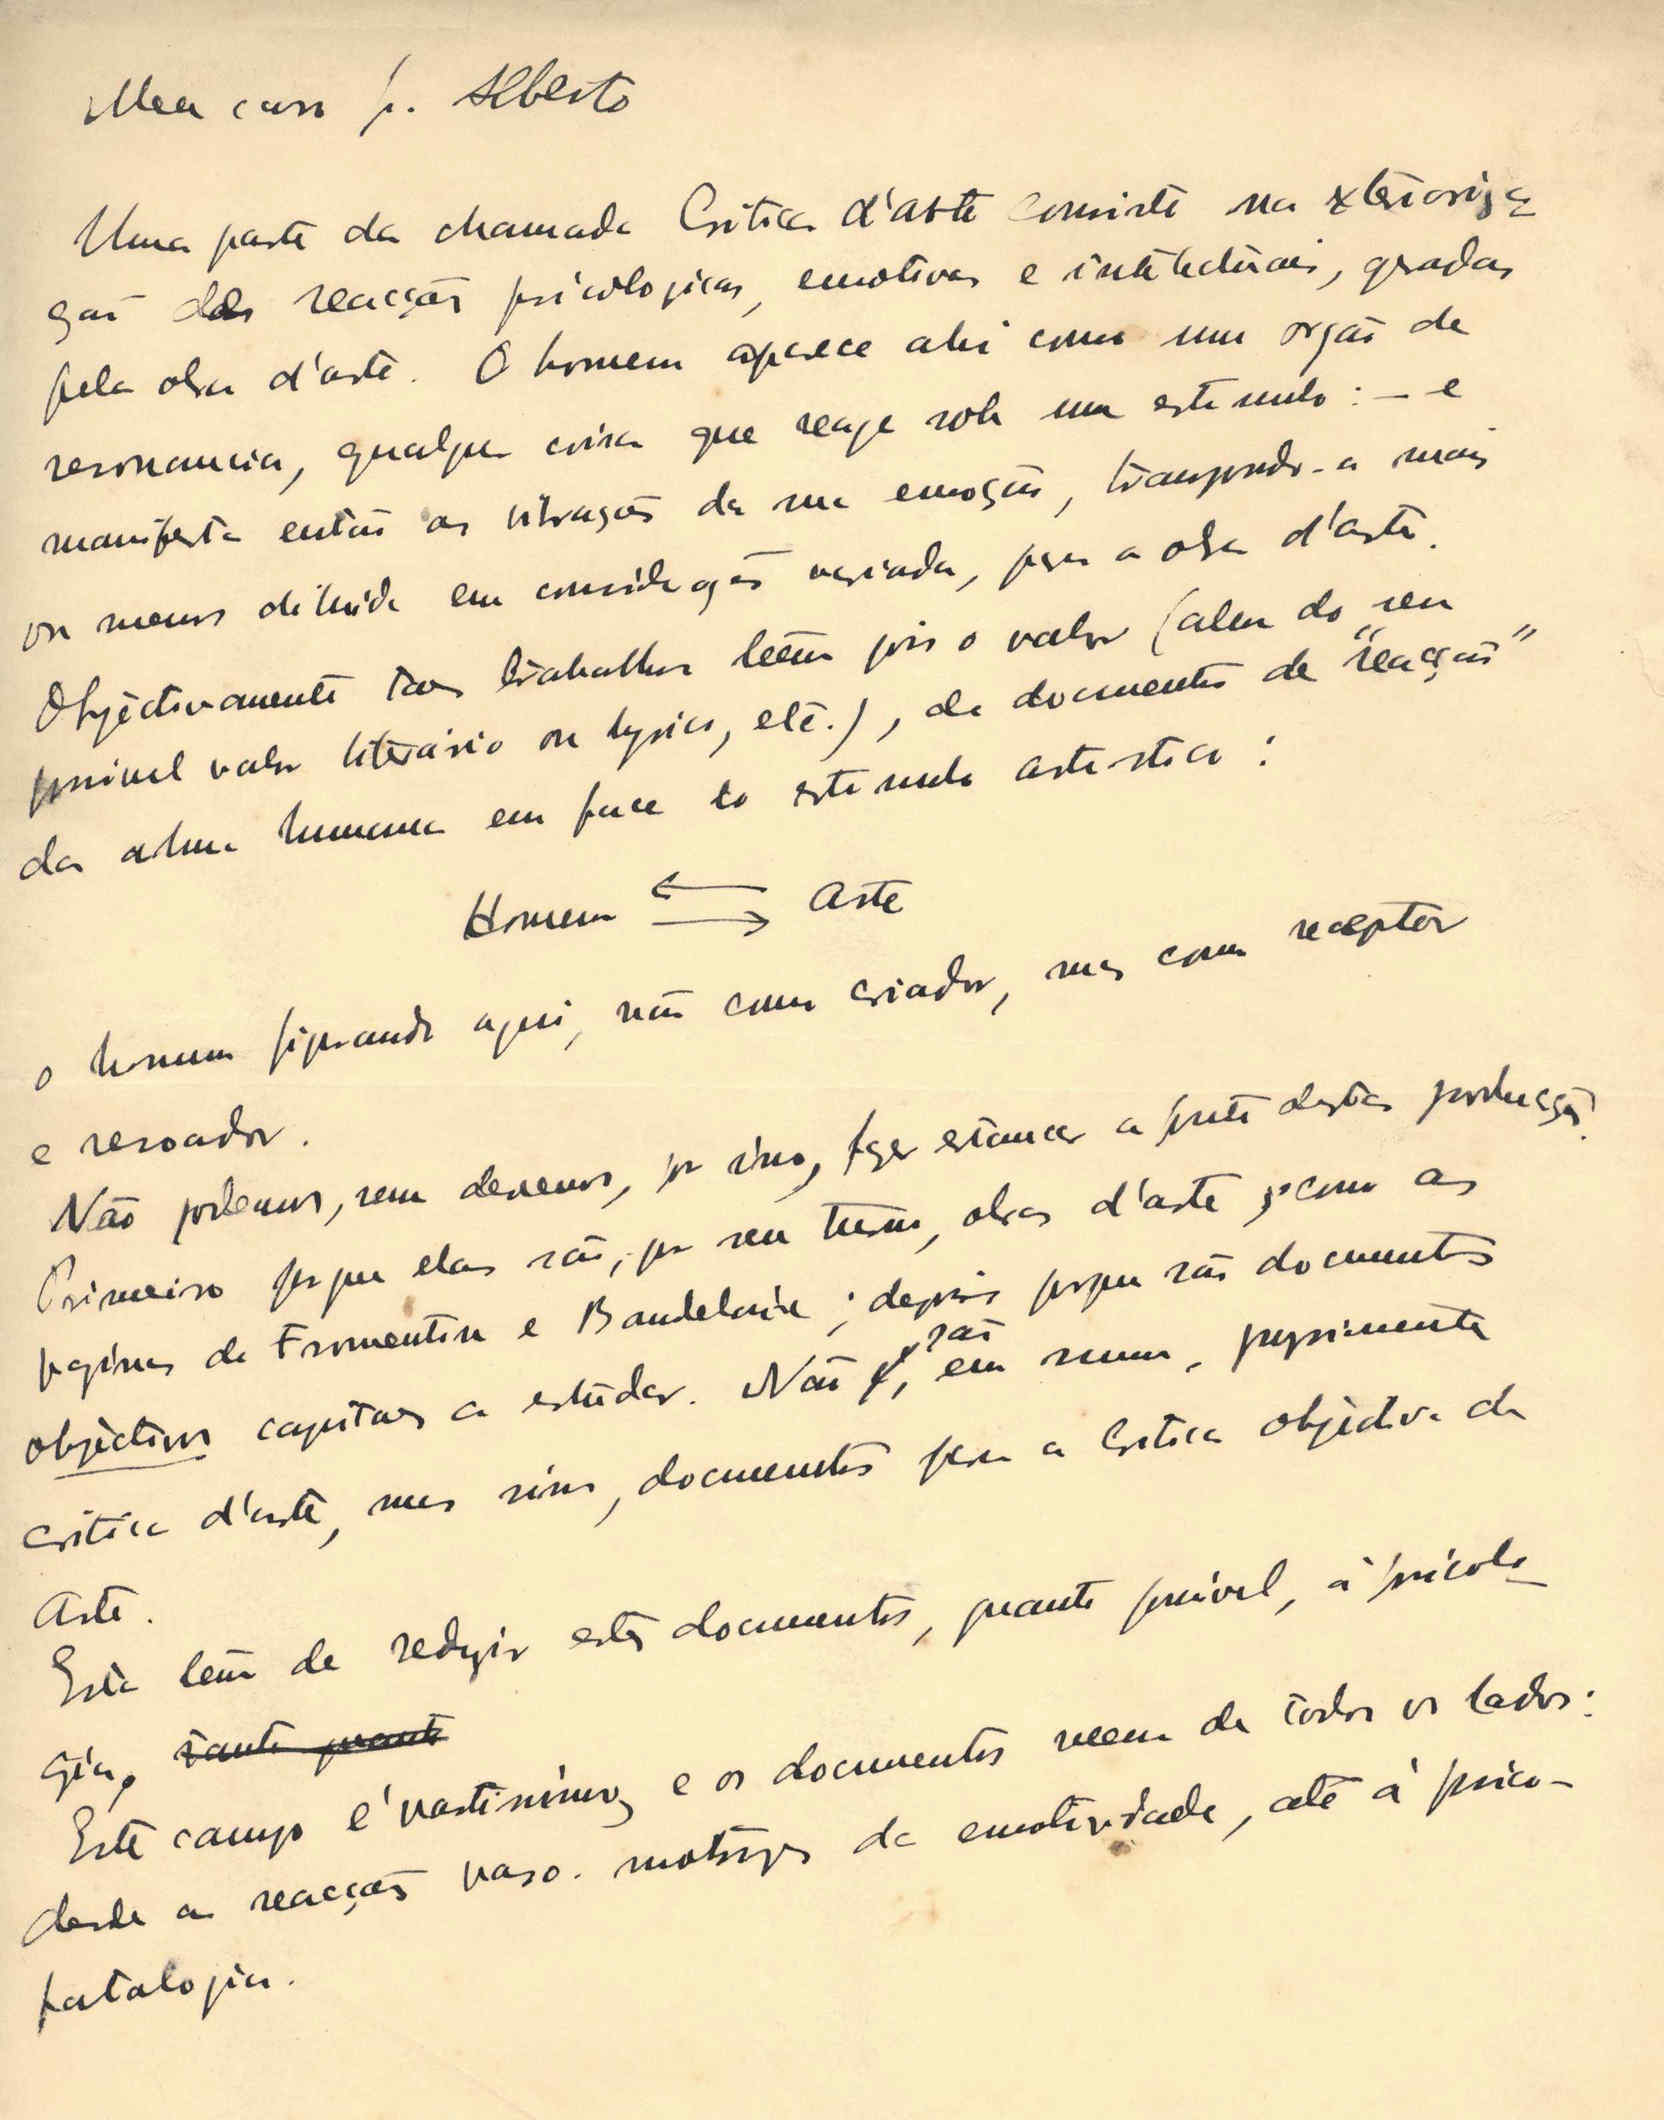 Meu caro p. Alberto
Uma parte da chamada Critica d'arte consiste na exterioriza
ção das reacções psicologicas, emotivas e intelectuais, geradas
pela obra d'arte. O homem aparece ahi como um orgão de
resonancia, qualquer coisa que reage sob um estimulo : – e
manifesta então as vibrações da sua emoção, transpondo-a mais
ou menos diluida em considerações variadas, para a obra d'arte.
Objectivamente taes trabalhos teem pois o valor (alem do seu
possivel valor literário ou lyrico, etc.), de documentos de "reacção"
da alma humana em face do estimulo artistico :
Homem ⇄ arte
o homem figurando aqui, não como criador, mas como receptor
e resoador.
Não podemos, nem devemos, por isso, fazer estancar a fonte destas producções.
Primeiro porque elas são, por seu turno, obras d'arte, como as
paginas de Fromentin e Baudelaire ; depois porque são documentos
objectivos capitaes a estudar. Não são, em suma, propriamente
critica d'arte, mas sim, documentos para a Critica objectiva da
arte.
Esta tem de reduzir estes documentos, quanto possivel, à psicolo
gia, tanto quanto
Este campo é vastissimo, e os documentos veem de todos os lados:
desde as reacções vaso-motrizes da emotividade, até à psico-
patalogia.